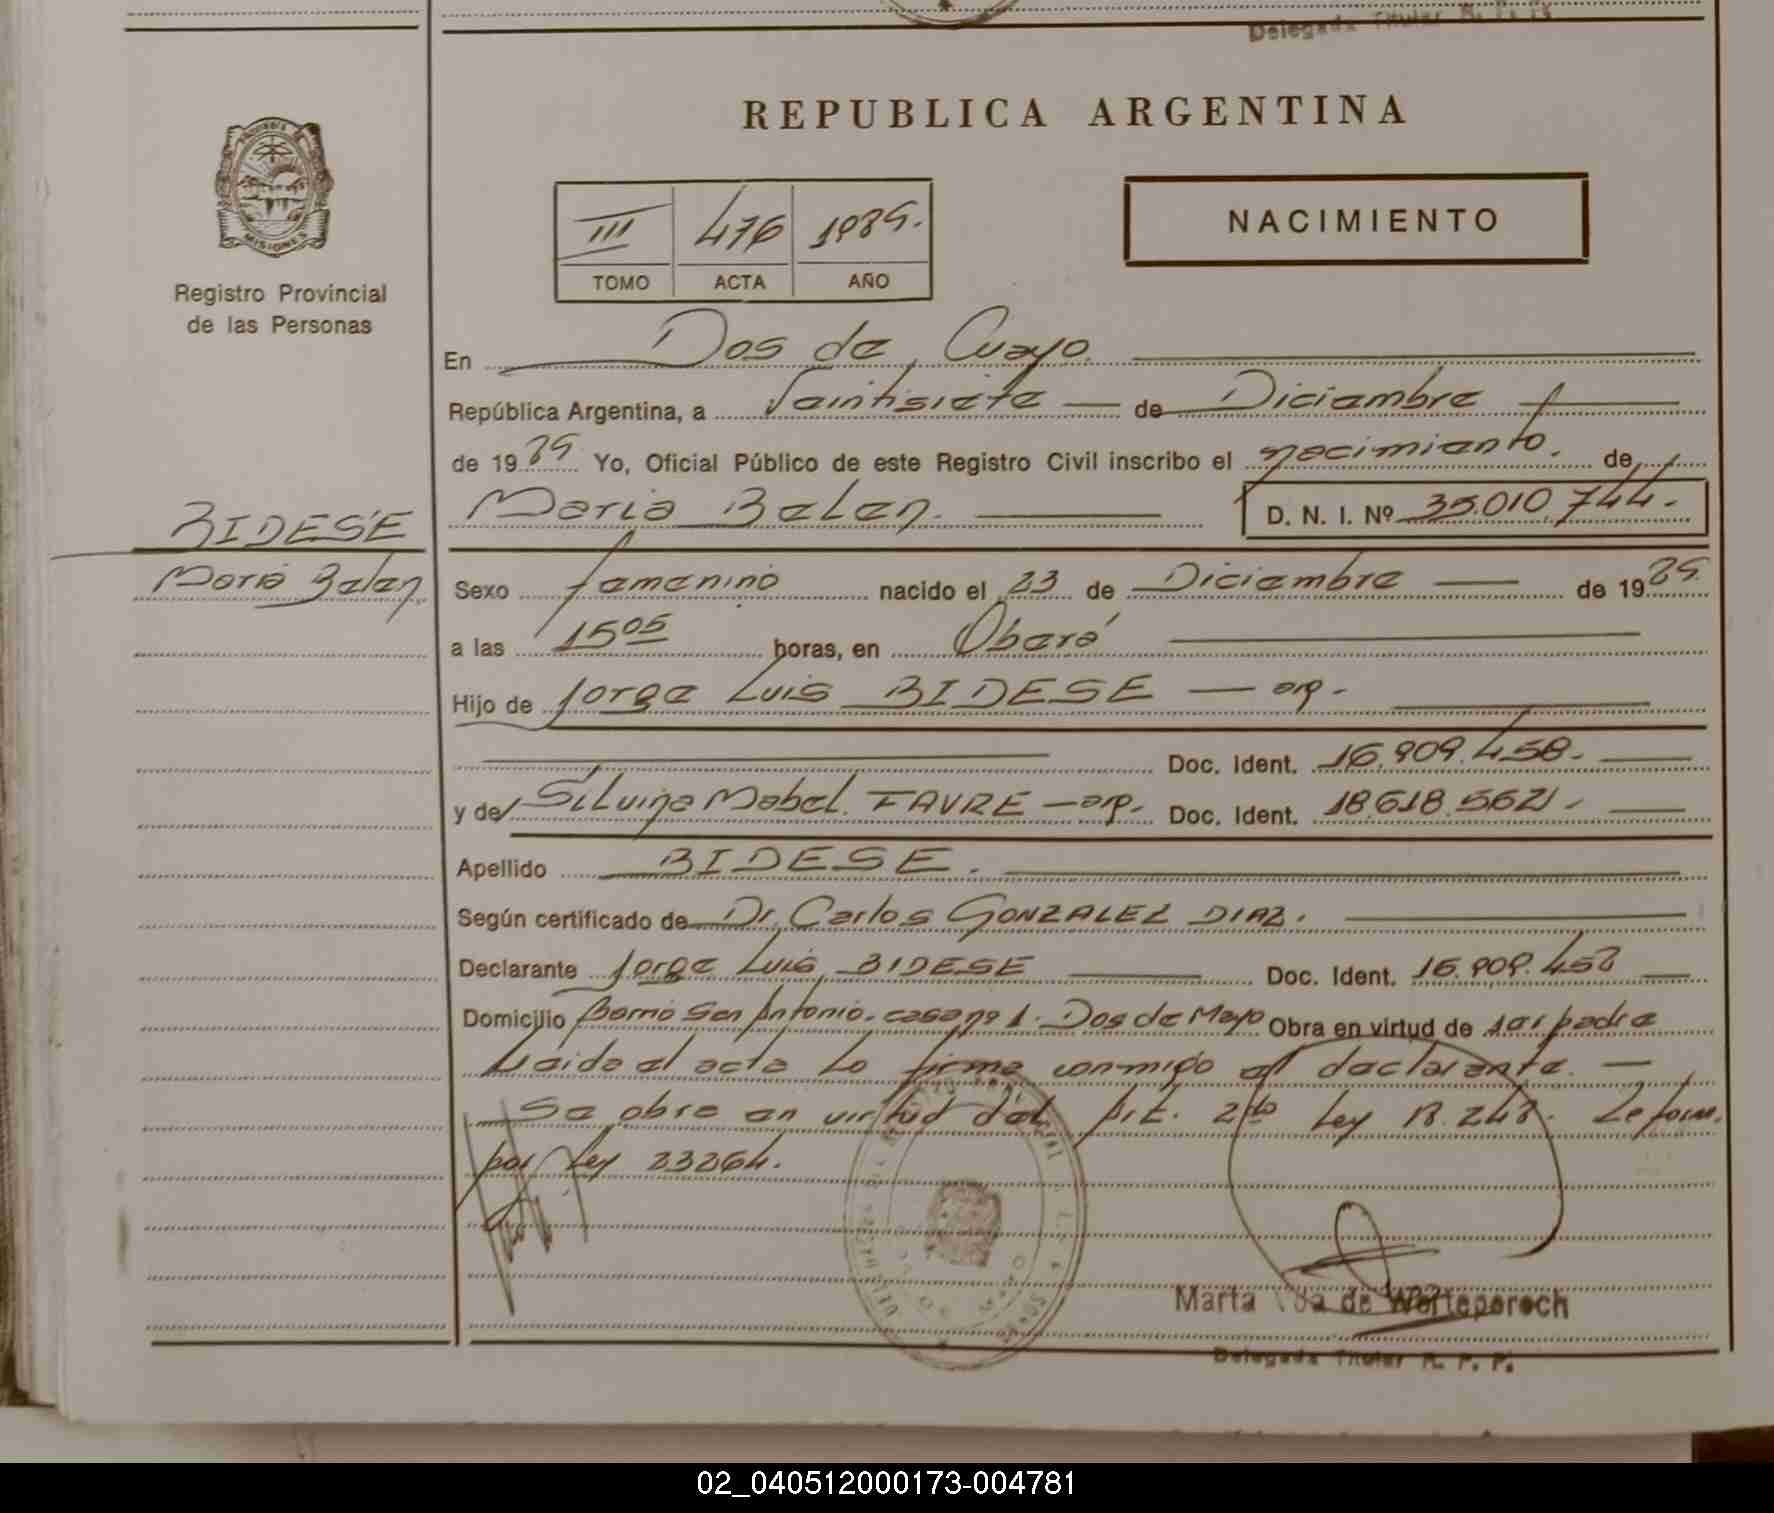 Delegada Titular R. P. P.
REPUBLICA ARGENTINA
MISIONES
Registro Provincial
de las Personas
III 476 1989.
TOMO ACTA AÑO
NACIMIENTO
En Dos de Mayo
República Argentina, a Veintisiete de Diciembre
de 1989 Yo, Oficial Público de este Registro Civil inscribo el nacimiento. de
Maria Belen. D. N. I. Nº 35.010.744.
BIDESE
Maria Belen
Sexo femenino nacido el 23 de Diciembre de 1989.
a las 15 05 horas, en Oberá
Hijo de Jorge Luis BIDESE — arg.
Doc. Ident. 16.909.458.
y de Silvina Mabel. FAVRE — arg. Doc. Ident. 18.618.562.
Apellido BIDESE.
Según certificado de Dr. Carlos GONZALEZ DIAZ.
Declarante Jorge Luis BIDESE Doc. Ident. 16.909.458
Domicilio Barrio San Antonio. casa nº 1. Dos de Mayo Obra en virtud de ser padre
Leida el acta lo firma conmigo el declarante. —
Se obra en virtud del Art. 2do Ley 18.248.
por Ley 23264.
Marta Vda de
Delegada Titular R. P. P.
02_040512000173-004781